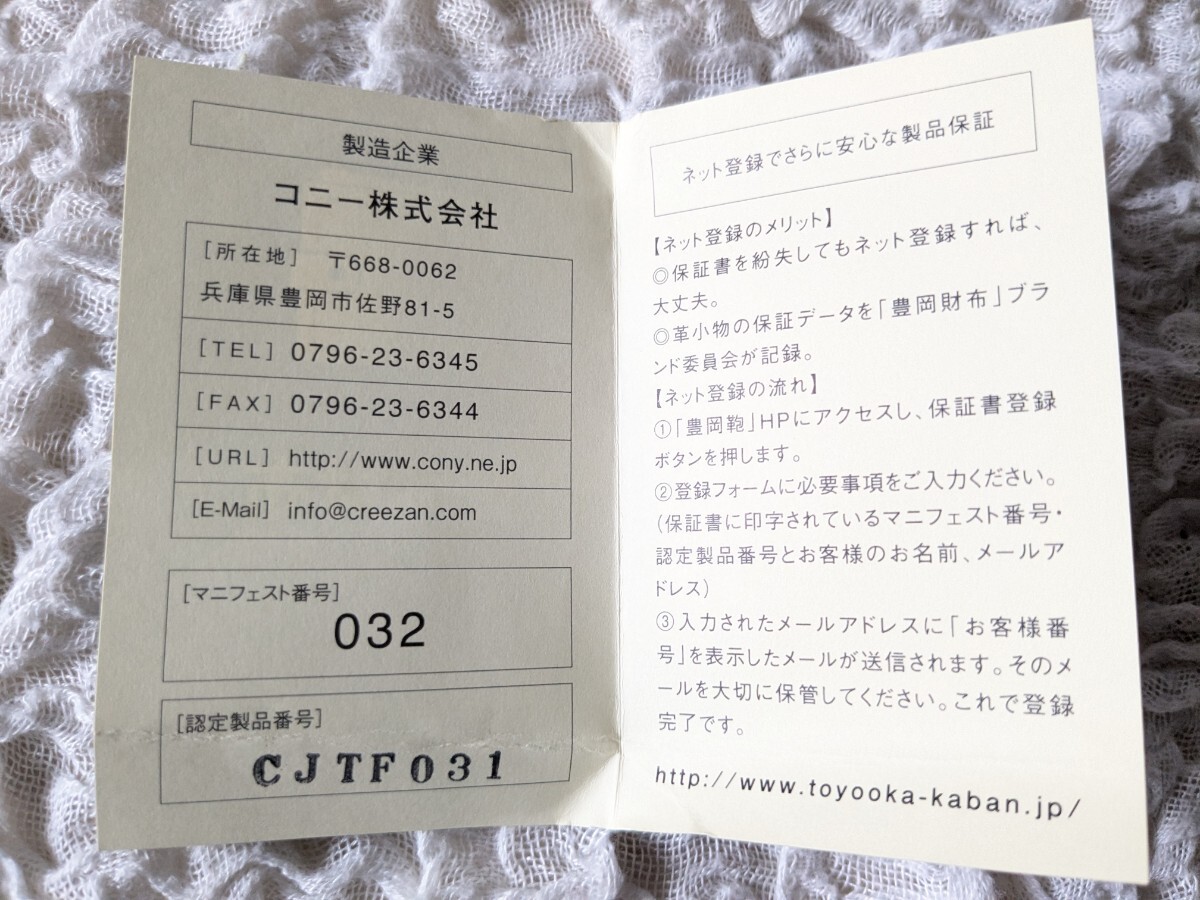 製造企業
コニー株式会社
[所在地] 〒668-0062
兵庫県豊岡市佐野81-5
[TEL] 0796-23-6345
[FAX] 0796-23-6344
[URL] http://www.cony.ne.jp
[E-Mail] info@creezan.com
[マニフェスト番号]
032
[認定製品番号]
CJTF031
ネット登録でさらに安心な製品保証
【ネット登録のメリット】
◎保証書を紛失してもネット登録すれば、
大丈夫。
◎革小物の保証データを「豊岡財布」ブラ
ンド委員会が記録。
【ネット登録の流れ】
①「豊岡鞄」HPにアクセスし、保証書登録
ボタンを押します。
②登録フォームに必要事項をご入力ください。
(保証書に印字されているマニフェスト番号・
認定製品番号とお客様のお名前、メールア
ドレス)
③入力されたメールアドレスに「お客様番
号」を表示したメールが送信されます。そのメ
ールを大切に保管してください。これで登録
完了です。
http://www.toyooka-kaban.jp/